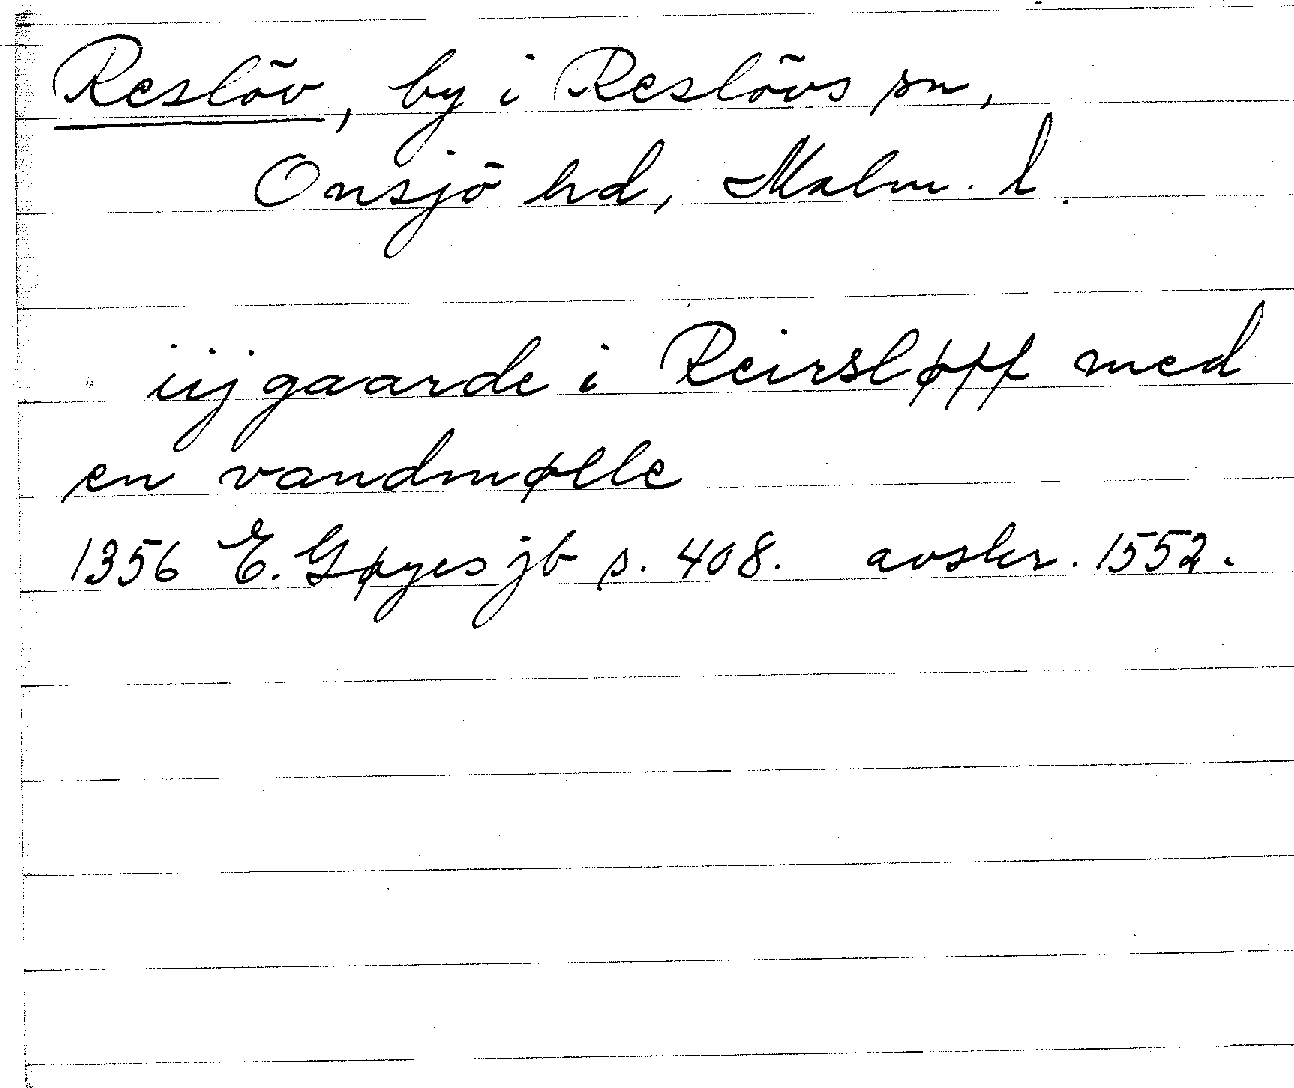 Reslöv, by i Reslövs sn,
Onsjö hd, Malm. l.
iij gaarde i Reirsløff med
en vandmølle
1356 E. Gøyes jb s. 408. avskr. 1552.